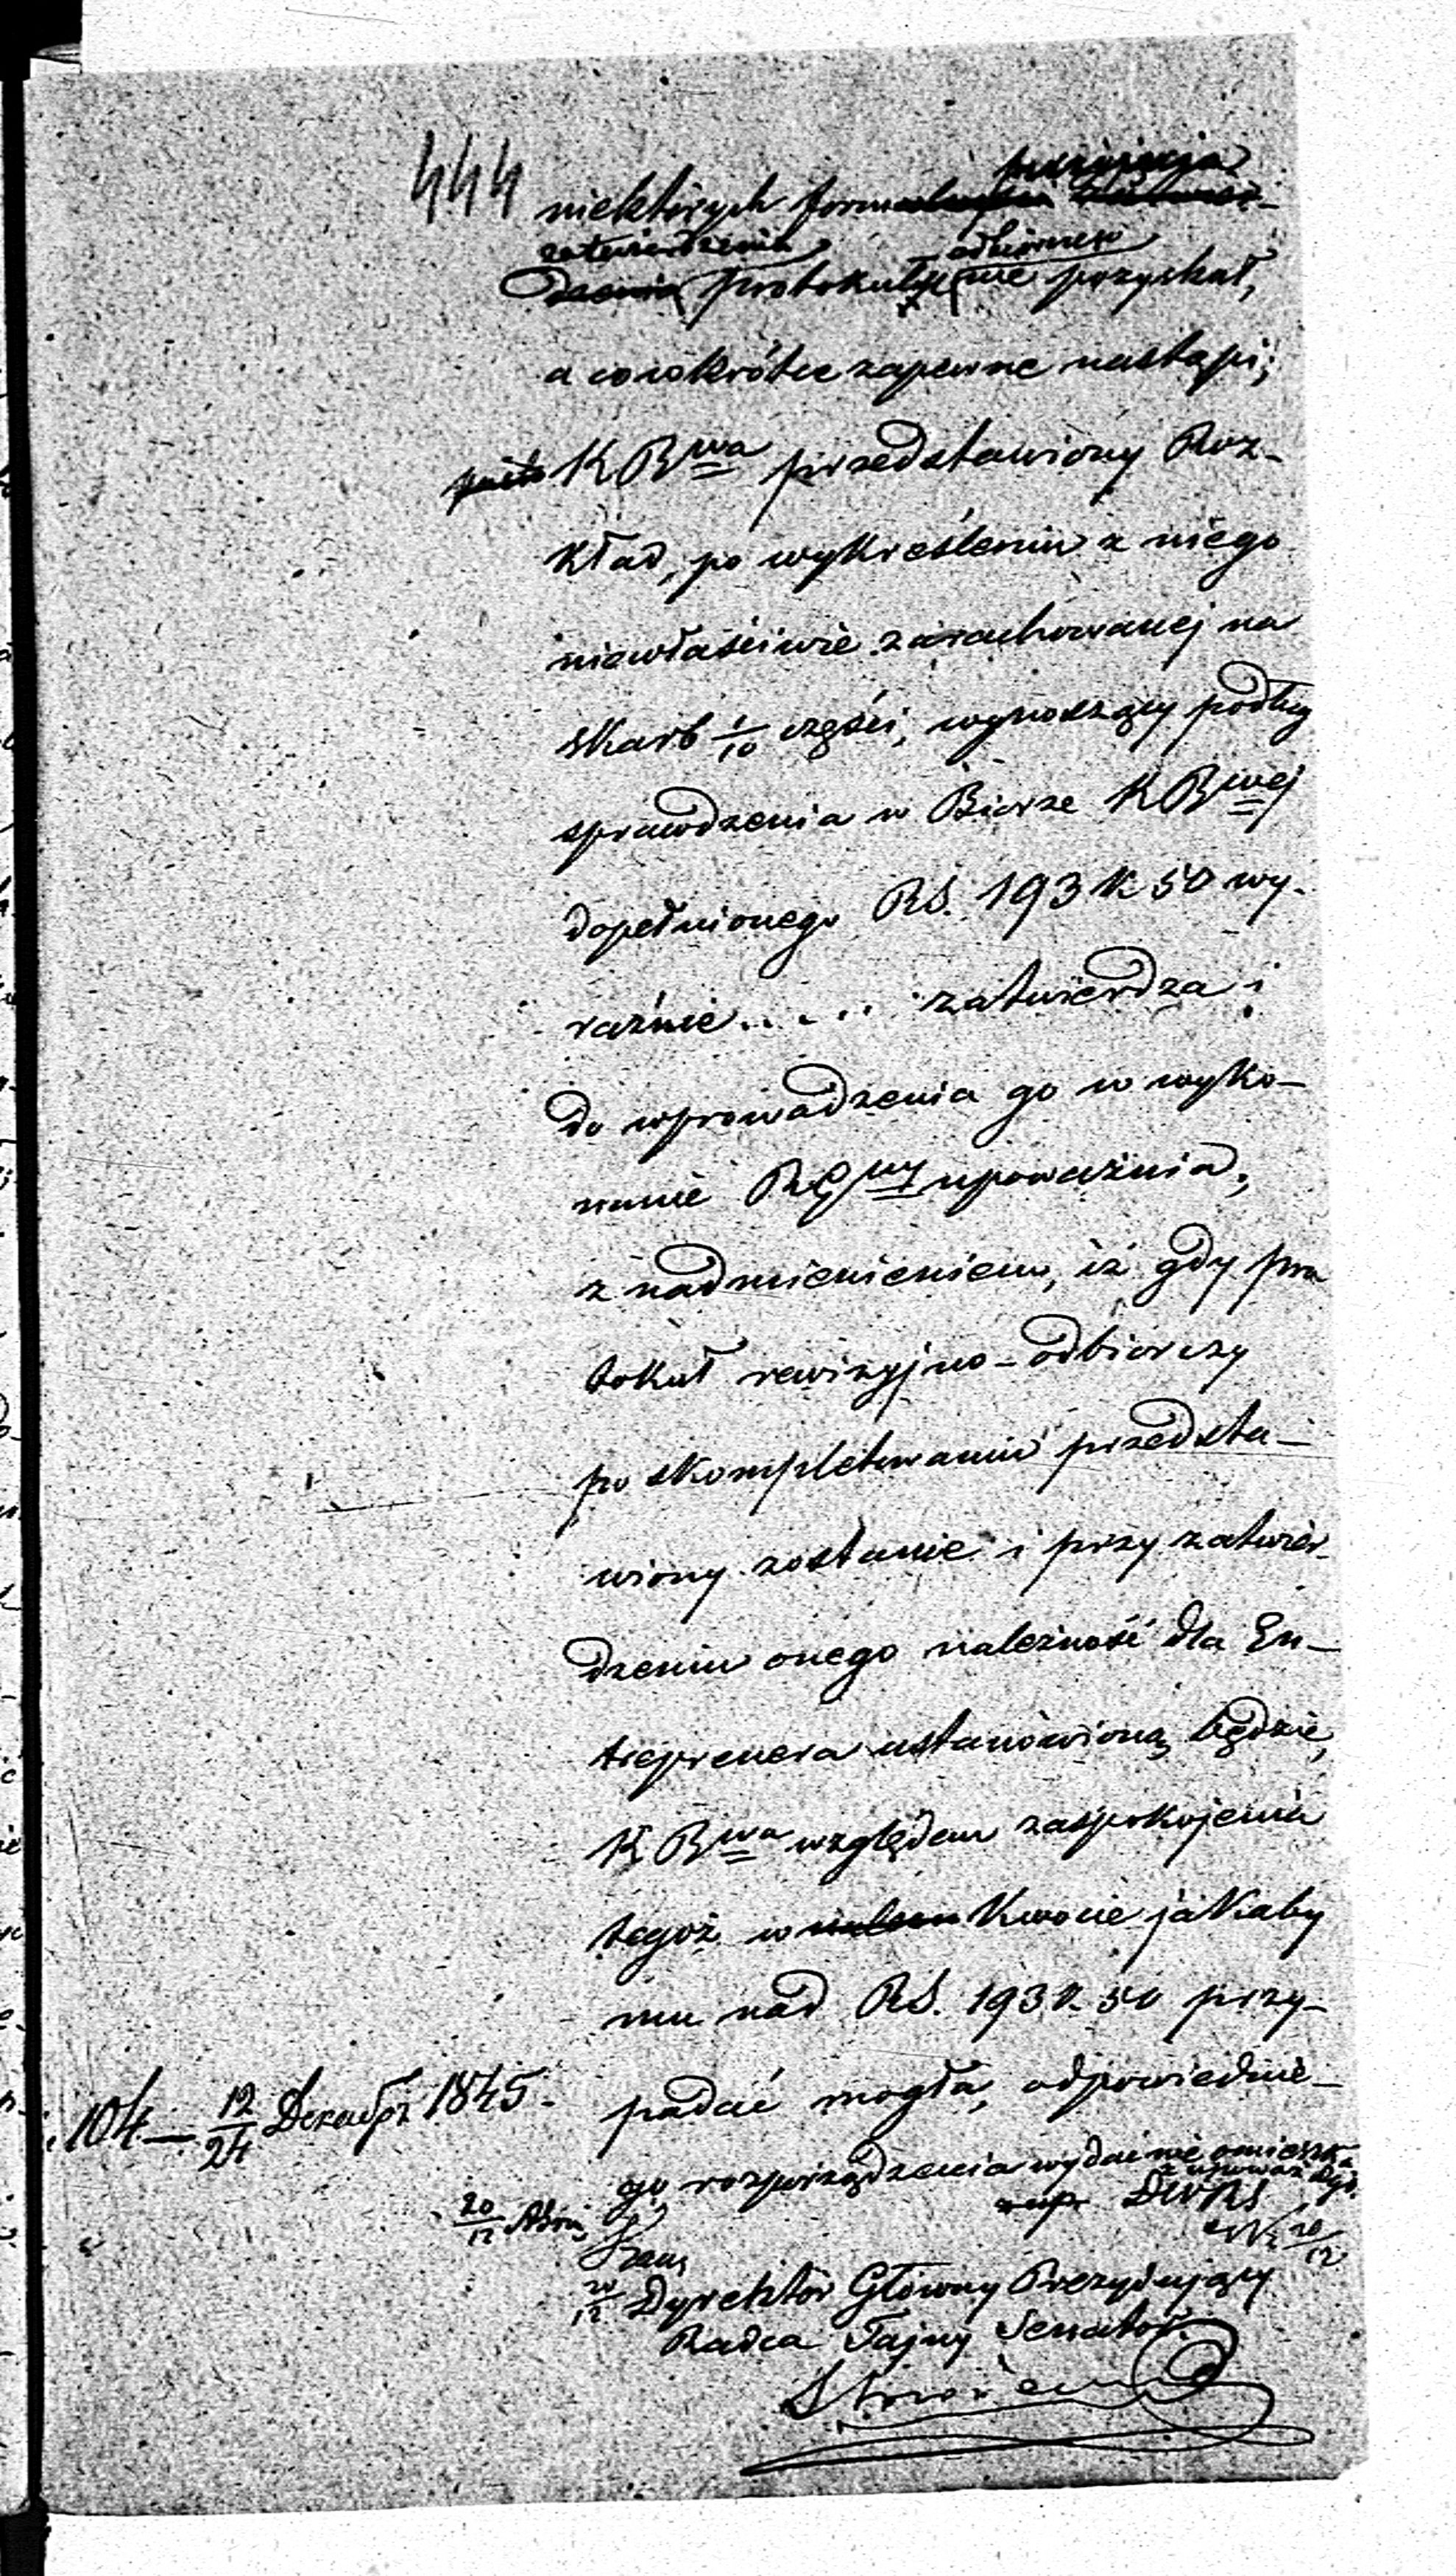 444
niektórych form
zatwierdzenia
protokułu nie pozyskał,
a co wkrótce zapewne nastąpi;
K R wa przedstawiony Roz-
kład, po wykreśleniu z niego
niewłaściwie zarachowanej na
skarb 1/10 części, wynoszący podług
sprawdzenia w Biórze K R wej
dopełnionego RS. 193 K 50 wy-
raźnie..... zatwierdza i
do wprowadzenia go w wyko-
nanie RG ny upoważnia,
z nadmienieniem, iż gdy pro
tokuł rewizyjno-odbiorczy
po skompletowaniu przedsta-
wiony zostanie i przy zatwier-
dzeniu onego należność dla En-
treprenera ustanowioną będzie,
K R wa względem zaspokojenia
tegoż w kwocie jakaby
mu nad RS. 193 k. 50 przy-
padać mogła, odpowiednie-
104 — 12/24 Декабря 1845.
go rozporządzenia wydać nie omieszka
20/12
20/12
Dyrektor Główny Prezydujący
Radca Tajny Senator